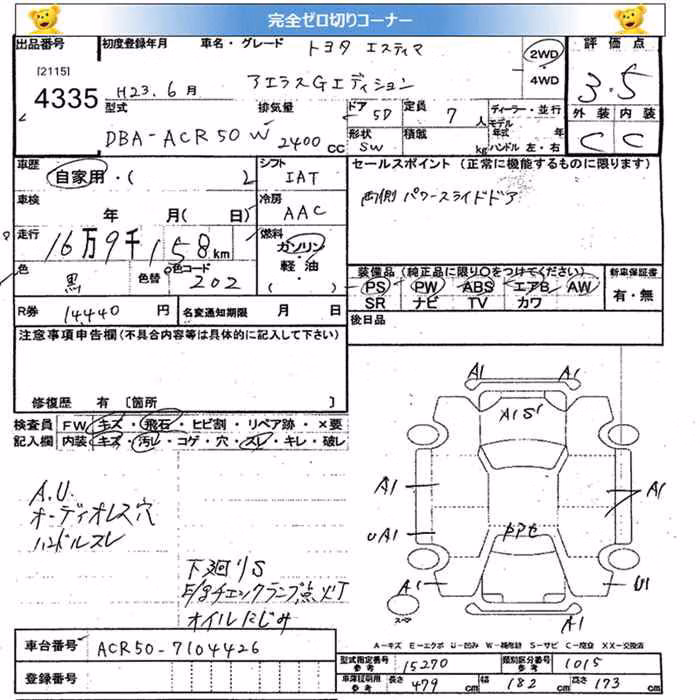 完全ゼロ切りコーナー
出品番号 初度登録年月 車名・グレード トヨタ エスティマ 2WD 評価点
[2115] 4335 H23.6月 アエラスGエディション 4WD 3.5
型式 排気量 ドア 5D 定員 7人 ディーラー・並行 外装 内装
DBA-ACR50W 2400cc 形状 SW 積載 kg モデル年式 年 ハンドル 左・右 C C
車歴 自家用・( ) シフト IAT セールスポイント(正常に機能するものに限ります)
車検 年 月( 日) 冷房 AAC 両側パワースライドドア
走行 16万9千158km 燃料 ガソリン・軽油・( )
色 黒 色替 色コード 202
装備品(純正品に限り○をつけてください) 新車保証書
PS PW ABS エアB AW 有・無
SR ナビ TV カワ
R券 14440円 名変通知期限 月 日 後日品
注意事項申告欄(不具合内容等は具体的に記入して下さい)
修復歴 有 [箇所 ]
検査員 FW キズ・飛石・ヒビ割・リペア跡・×要
記入欄 内装 キズ・汚レ・コゲ・穴・スレ・キレ・破レ
A1 A1
A1S'
A1 A1
UA1
A1 U1
スペア
A1
A.U.
オーディオレス穴
ハンドルスレ
下廻りS
E/gチェックランプ点灯
オイルにじみ
A-キズ E-エクボ U-凹み W-補修跡 S-サビ C-腐食 XX-交換済
車台番号 ACR50-7104426
登録番号
型式指定番号 参考 15270 類別区分番号 参考 1015
車庫証明用 参考 長さ 479cm 幅 182cm 高さ 173cm